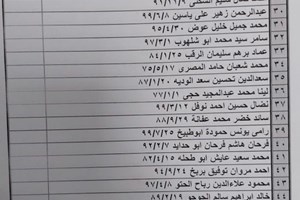 ٣٠ عبدالرحمن زهير على ياسين ٩٩/١/٨
٣١ محمد جميل خليل عوض ٩٥/٤/٣٠
٣٢ سامر سيد محمد ابو شلهوب ٩٧/٣/١
٣٣ عماد برهم سليمان الرقب ٨٤/١/٢٥
٣٤ محمد شعبان حامد المصرى ٧٥/٥/١٧
٣٥ سعدالدين تحسين سعد الوديه ٨٧/١/٢٠
٣٦ لينا محمد عبدالمجيد حجي ٧٧/١/١
٣٧ نضال حسين احمد نوفل ٩٩/٣/١٢
٣٨ سائد خضر محمد عفانة ٨٨/٩/٢٤
٣٩ رامى يونس حمودة ابوطبيخ ٩٩/٧/٢٥
٤٠ فرحان هاشم فرحان ابو حدايد ٩٢/٧/٧
٤١ محمد سعيد عايش ابو طحله ٨٢/٤/١٥
٤٢ احمد مروان توفيق بريخ ٩٤/٩/٢٤
٤٣ محمود علاءالدين رباح الحتو ٩٧/٤/٨
٤٤ خالد ابراهيم سالم الحوجو ٨٩/٢/١٩